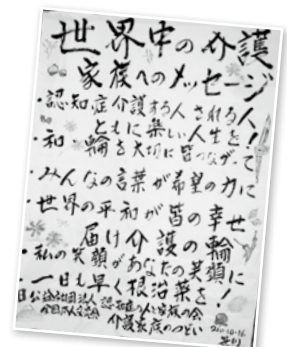 世界中の介護
家族へのメッセージ
・認知症介護する人 される人
ともに楽しい人生を!
・和 輪を大切に皆つながって
・みんなの言葉が希望の力に
・世界の平和が皆の幸せ
届け介護の輪
・私の笑顔があなたの笑顔に
・一日も早く根治薬を!
公益社団法人 認知症の人と家族の会
介護家族のつどい